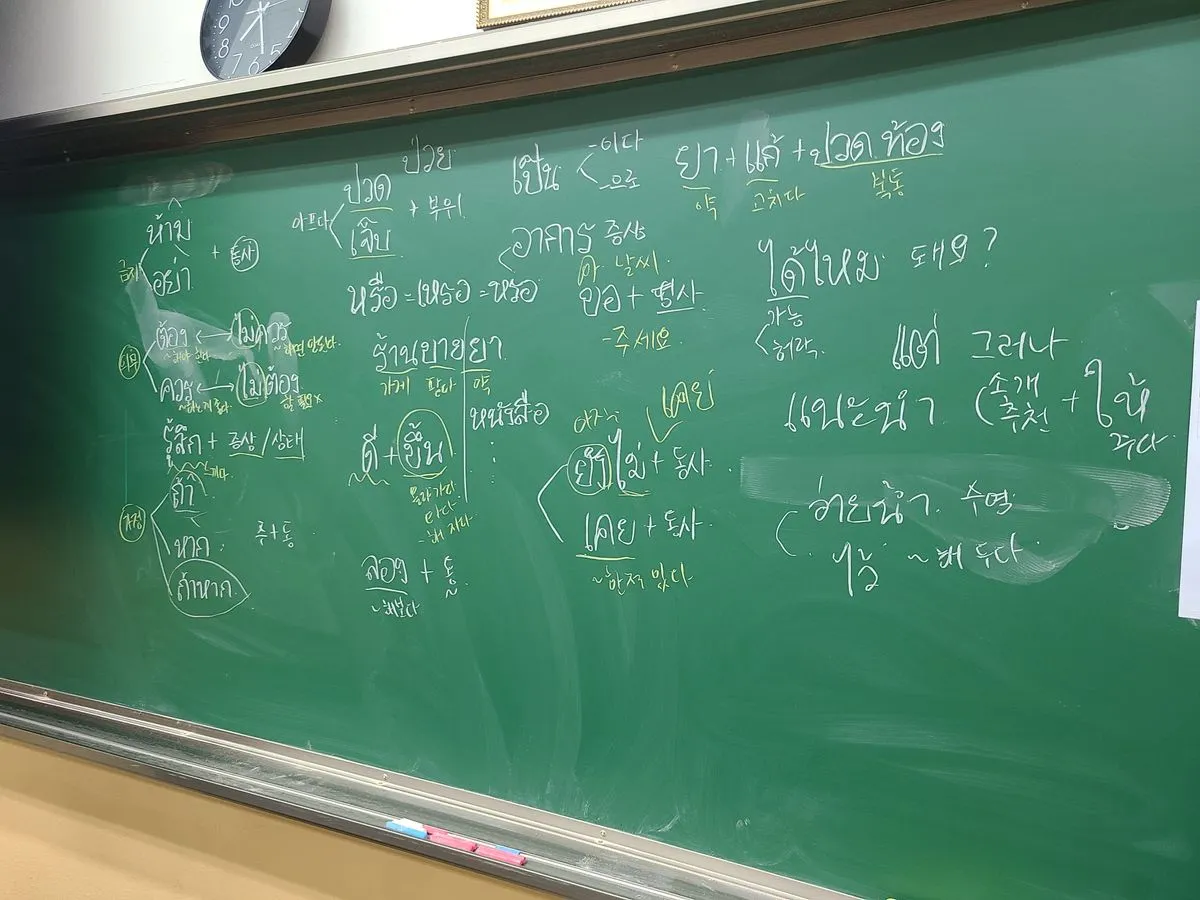 ห้าม
อย่า
금지
+ 동사
ต้อง ↔ ไม่ควร
ควร ↔ ไม่ต้อง
의무
รู้สึก + 증상/상태
ถ้า
หาก
ถ้าหาก
가정
주+동
ป่วย
아프다
ปวด
เจ็บ
+ 부위
หรือ = เหรอ = หรอ
ร้านขายยา
가게 팔다 약
หนังสือ
ดี + ขึ้น
올라가다
ลอง + 동
~해보다
เป็น
-이다
-으로
อาการ 증상
날씨
ขอ + 명사
-주세요
เคย
ยังไม่ + 동사
เคย + 동사
~한 적 있다
ยา + แก้ + ปวดท้อง
약 고치다 복통
ได้ไหม 돼요?
가능
허락
แต่ 그러나
แนะนำ (소개 추천 + ให้
주다
ว่ายน้ำ 수영
ไว้ ~해 두다